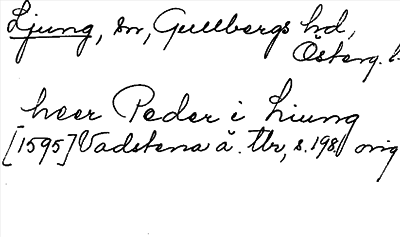 Ljung, sn, Gullbergs hd,
Österg. l.
heer Peder i Liung
[1595] Vadstena ä. Tbr, s. 198. orig